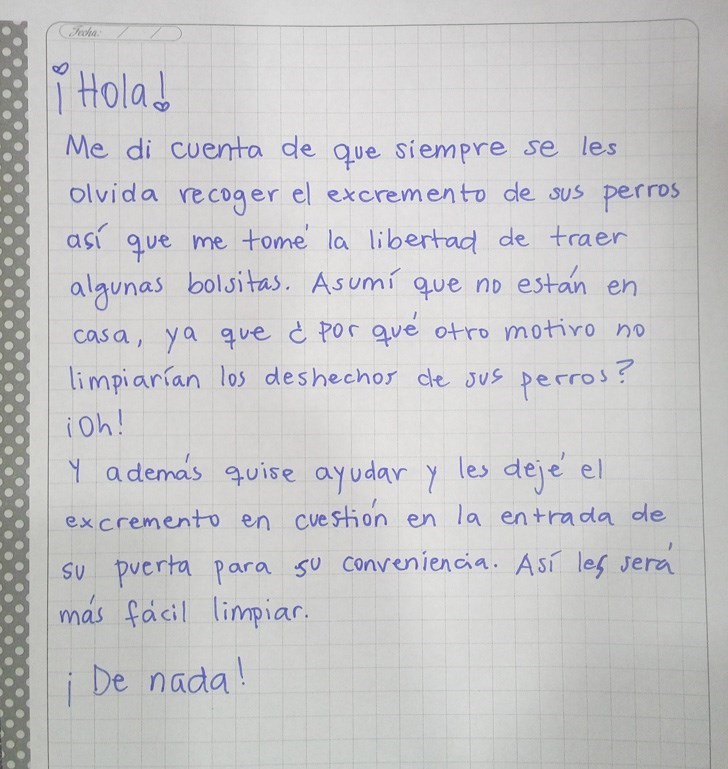 Fecha: / /
¡Hola!
Me di cuenta de que siempre se les
olvida recoger el excremento de sus perros
así que me tomé la libertad de traer
algunas bolsitas. Asumí que no están en
casa, ya que ¿por qué otro motivo no
limpiarían los deshechos de sus perros?
¡Oh!
Y además quise ayudar y les dejé el
excremento en cuestión en la entrada de
su puerta para su conveniencia. Así les será
más fácil limpiar.
¡De nada!